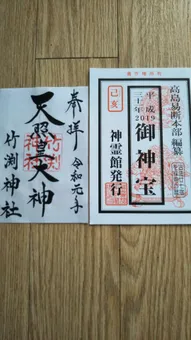 奉拝
天照皇大神
令和元年
竹渕神社
高島易断本部 編纂
平成三十一年
2019
己亥
御神宝
神霊館発行